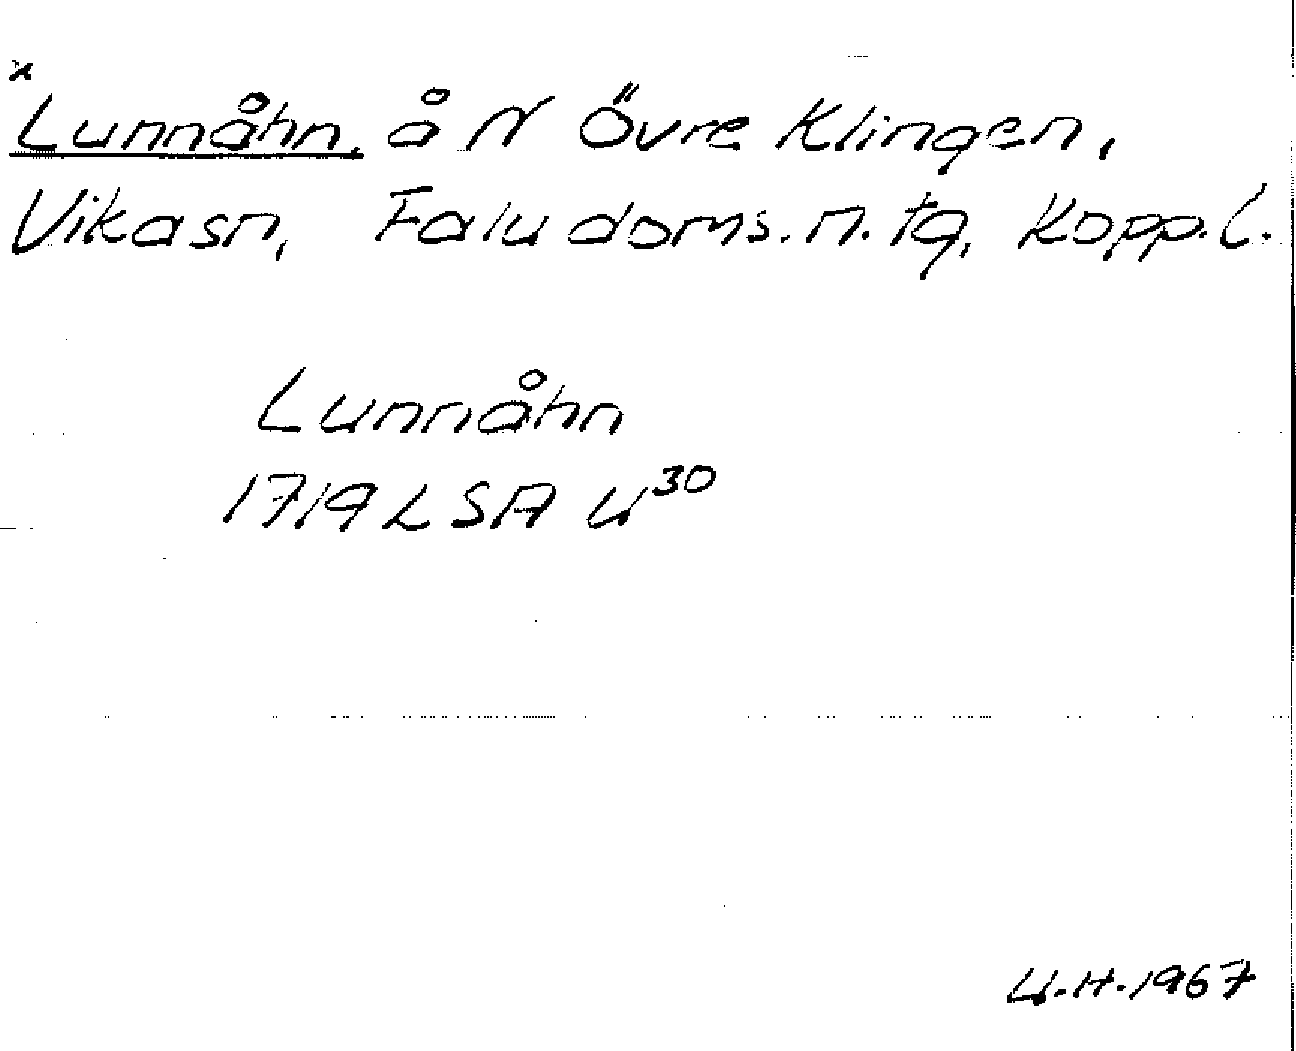 x
Lunnåhn, å N Övre Klingen,
Vikasn, Falu doms.n. tg, Kopp.l.
Lunnåhn
1719 LSA U³⁰
U.H. 1967